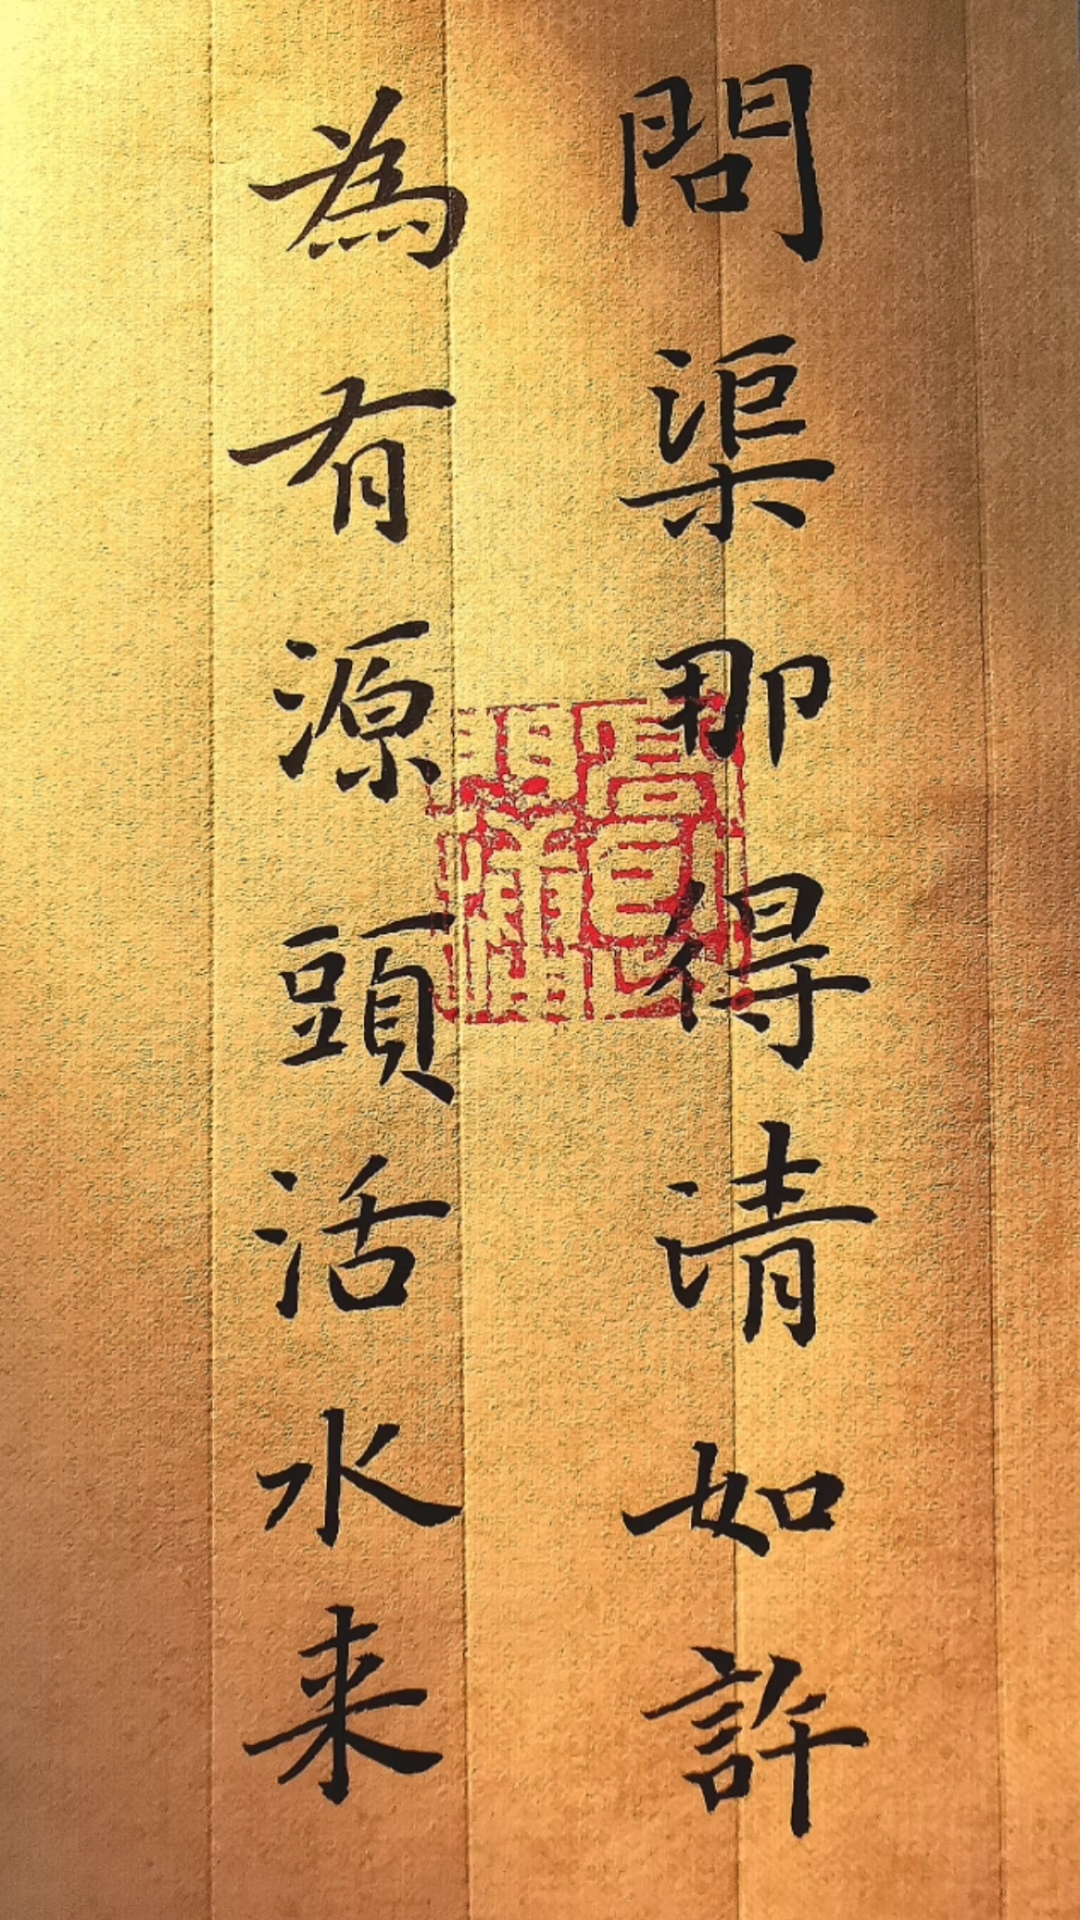 問渠那得清如許
為有源頭活水来